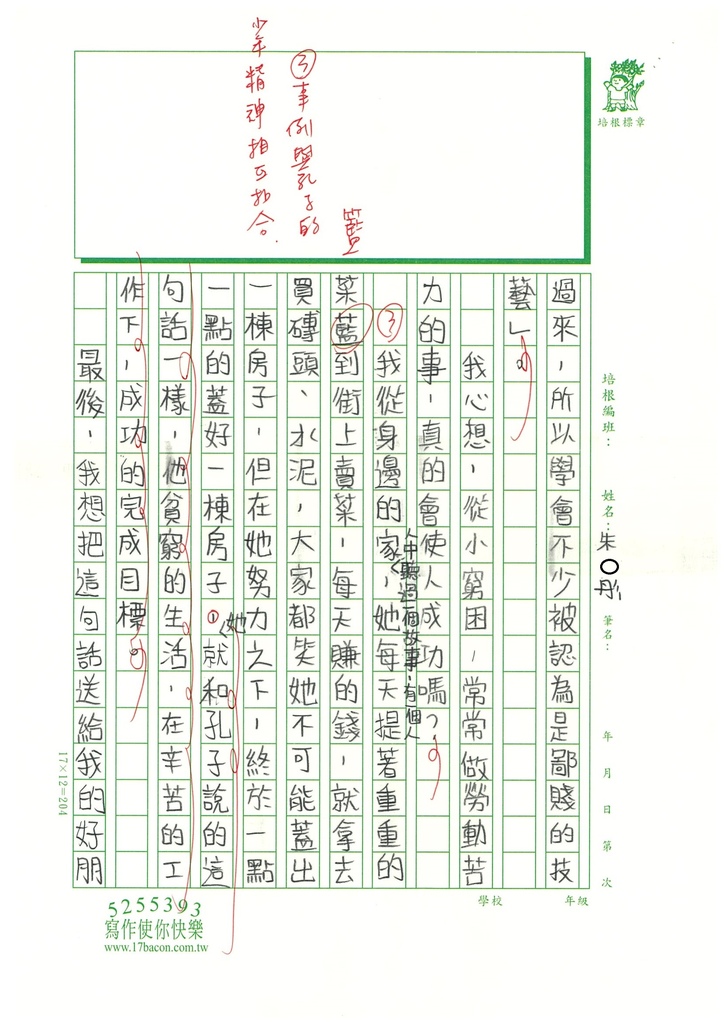 培根標章
籃
③事例與孔子的
少年精神相互扣合.
培根編班：
姓名：朱○彤
筆名：
年 月 日 第 次
學校 年級
過來，所以學會不少被認為是鄙賤的技
藝」。
我心想，從小窮困，常常做勞動苦
力的事，真的會使人成功嗎？
③我從身邊的家人中聽過一個故事，有一個人，她每天提著重重的
菜藍到街上賣菜，每天賺的錢，就拿去
買磚頭、水泥，大家都笑她不可能蓋出
一棟房子，但在她努力之下，終於一點
一點的蓋好一棟房子①她就和孔子說的這
句話一樣，他貧窮的生活，在辛苦的工
作下，成功的完成目標。
最後，我想把這句話送給我的好朋
17×12=204
5255393
寫作使你快樂
www.17bacon.com.tw